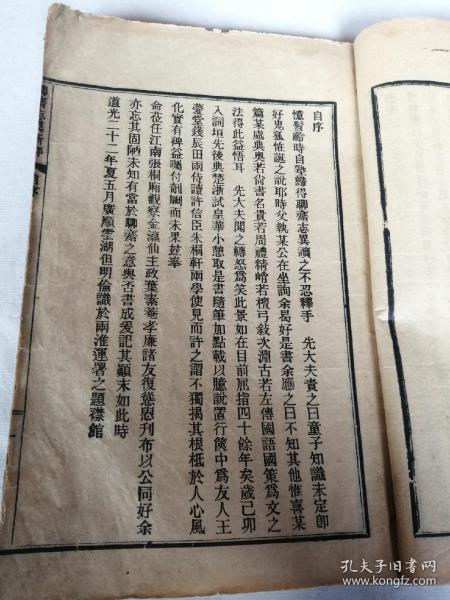 自序
憶髫齡時自塾歸得聊齋志異讀之不忍釋手　先大夫責之曰童子知識未定卽
好鬼狐怪誕之說耶時父執某公在坐詢余曷好是書余應之曰不知其他惟喜某
篇某處典奧若尚書名貴若周禮精峭若檀弓敍次淵古若左傳國語國策爲文之
法得此益悟耳　先大夫聞之轉怒爲笑此景如在目前屈指四十餘年矣歲己卯
入詞垣先後典楚浙試皇華小憩取是書隨筆加點載以臆說置行篋中爲友人王
藎堂錢辰田兩侍讀許信臣朱桐軒兩學使見而許之謂不獨揭其根柢於人心風
化實有裨益囑付剞劂而未果茲奉
命莅任江南張桐廂觀察金瀛仙主政葉素菴孝廉諸友復慫恿刋布以公同好余
亦忘其固陋未知有當於聊齋之意與否書成爰記其顚末如此時
道光二十二年夏五月廣順雲湖但明倫識於兩淮運署之題襟館
孔夫子旧书网
www.kongfz.com